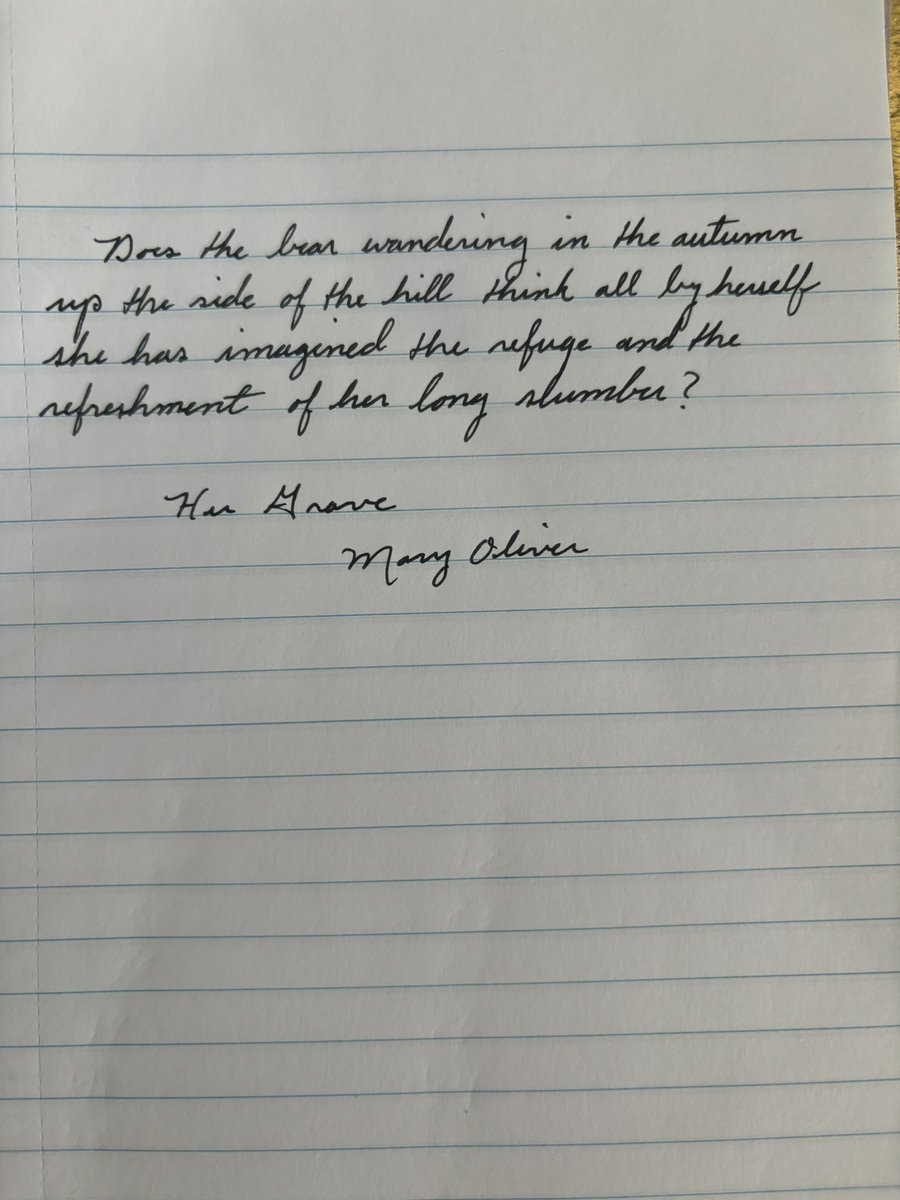 Does the bear wandering in the autumn
up the side of the hill think all by herself
she has imagined the refuge and the
refreshment of her long slumber?
Her Grave
Mary Oliver